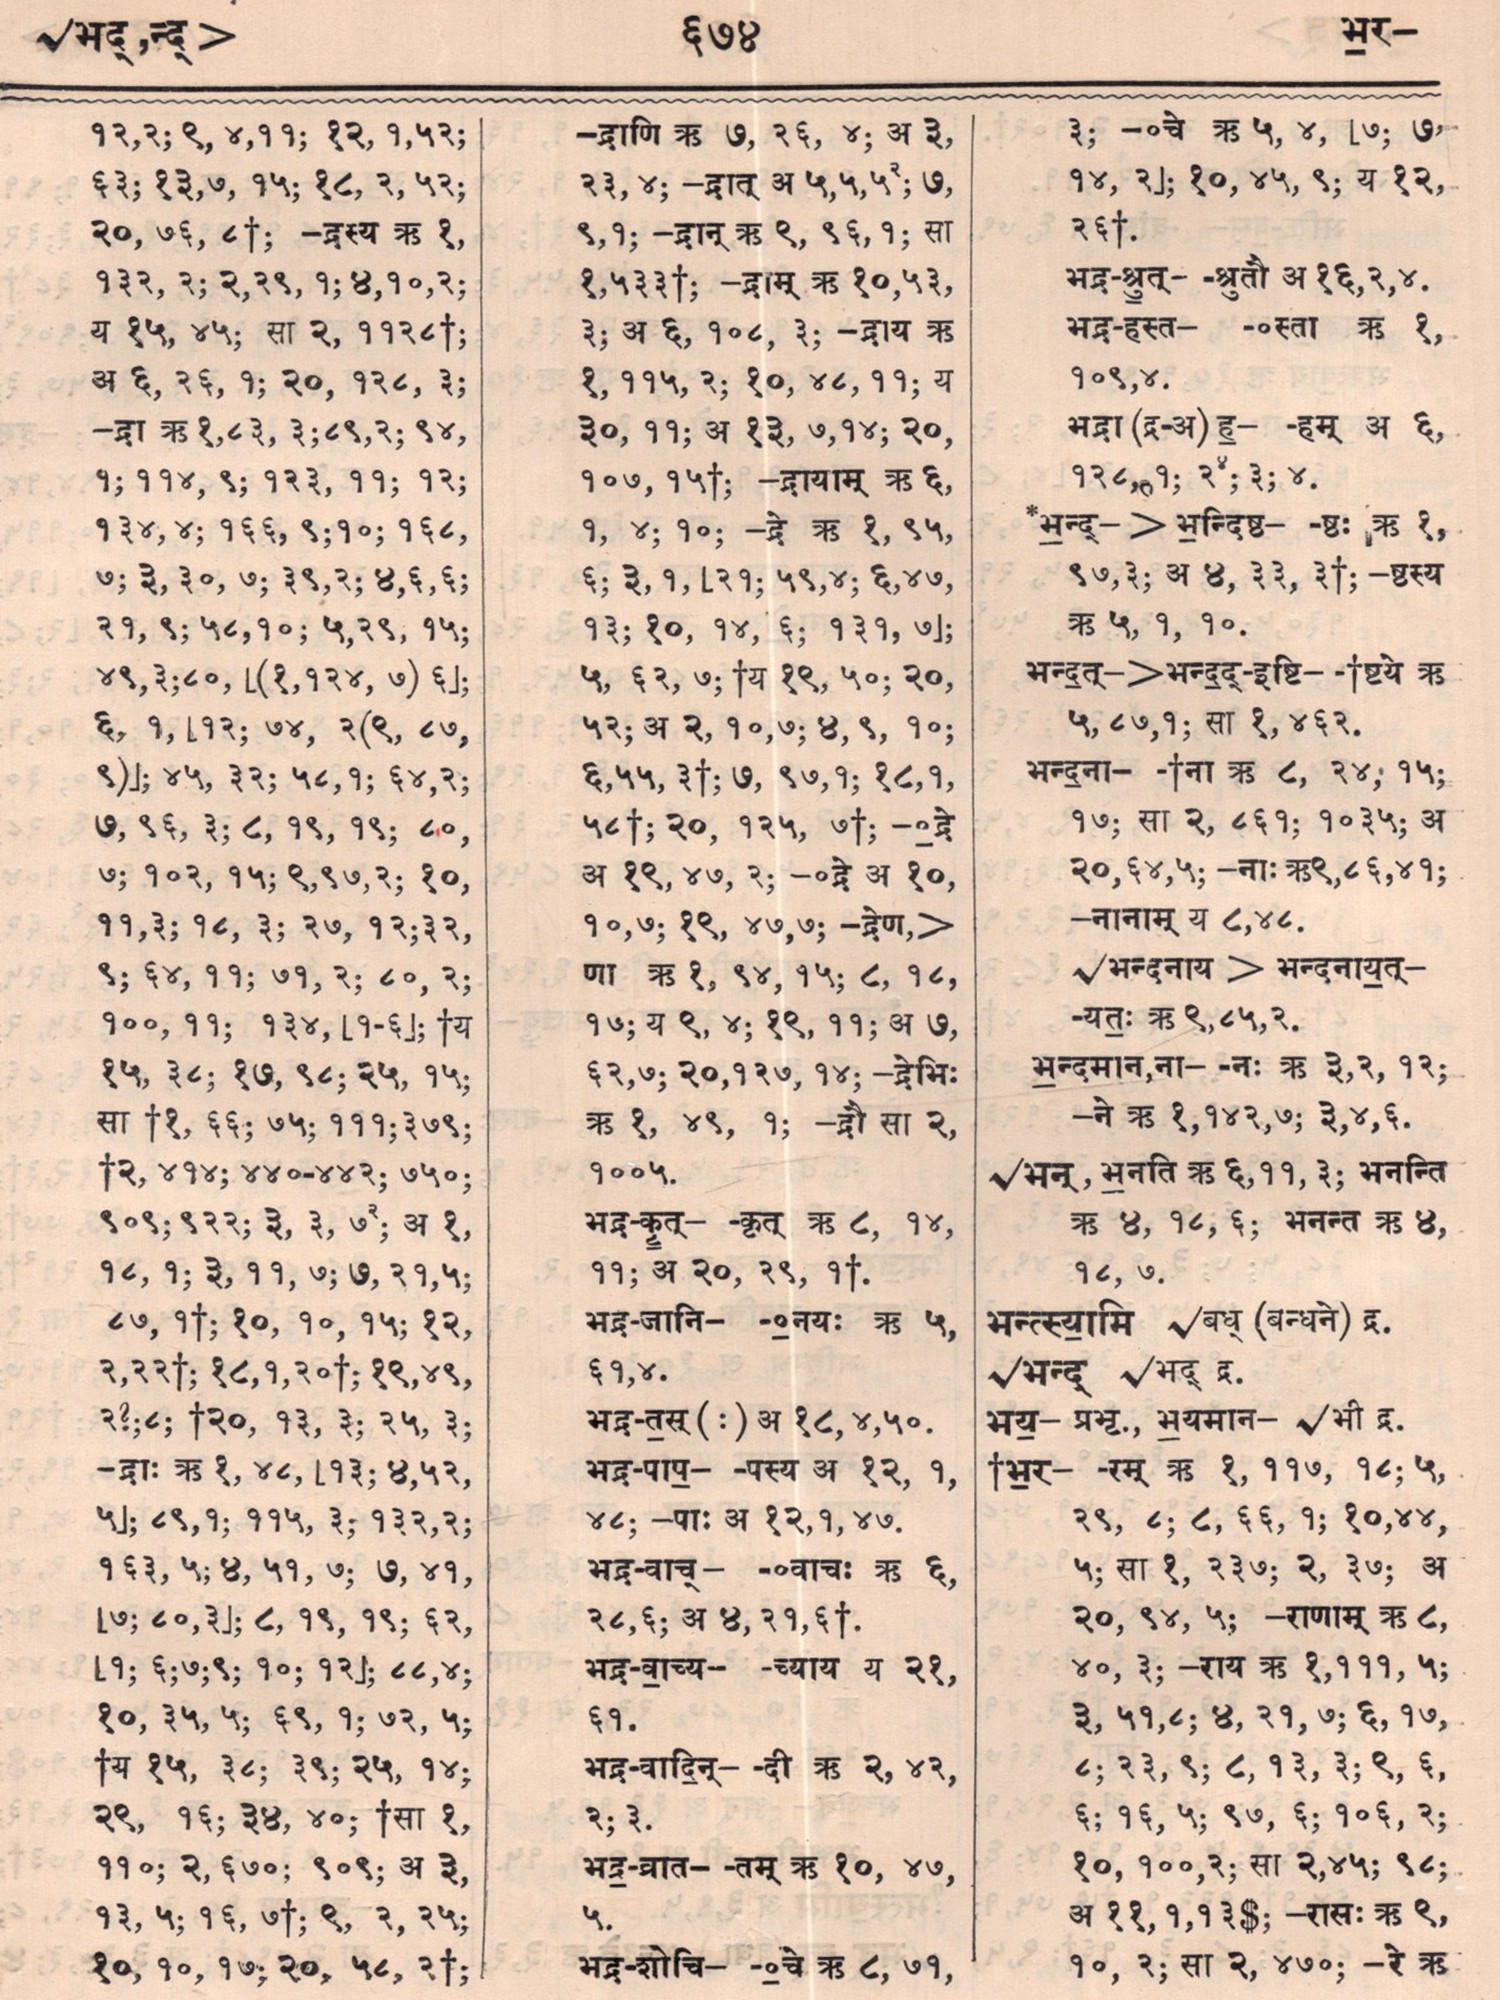 √भद्,न्द् >
६७४
भ॒र–
१२,२; ९, ४,११; १२, १,५२;
६३; १३,७, १५; १८, २, ५२;
२०, ७६, ८†; –द्रस्य ऋ १,
१३२, २; २,२९, १; ४,१०,२;
य १५, ४५; सा २, ११२८†;
अ ६, २६, १; २०, १२८, ३;
–द्रा ऋ १,८३, ३;८९,२; ९४,
१; ११४, ९; १२३, ११; १२;
१३४, ४; १६६, ९;१०; १६८,
७; ३, ३०, ७; ३९,२; ४,६,६;
२१, ९; ५८,१०; ५,२९, १५;
४९,३;८०, ⌊(१,१२४, ७) ६⌋;
६, १, ⌊१२; ७४, २(९, ८७,
९)⌋; ४५, ३२; ५८,१; ६४,२;
७, ९६, ३; ८, १९, १९; ८०,
७; १०२, १५; ९,९७,२; १०,
११,३; १८, ३; २७, १२;३२,
९; ६४, ११; ७१, २; ८०, २;
१००, ११; १३४, ⌊१-६⌋; †य
१५, ३८; १७, ९८; २५, १५;
सा †१, ६६; ७५; १११;३७९;
†२, ४१४; ४४०-४४२; ७५०;
९०९; ९२२; ३, ३, ७²; अ १,
१८, १; ३, ११, ७; ७, २१,५;
८७, १†; १०, १०, १५; १२,
२,२२†; १८,१,२०†; १९,४९,
२?;८; †२०, १३, ३; २५, ३;
–द्राः ऋ १, ४८, ⌊१३; ४,५२,
५⌋; ८९,१; ११५, ३; १३२,२;
१६३, ५; ४, ५१, ७; ७, ४१,
⌊७; ८०,३⌋; ८, १९, १९; ६२,
⌊१; ६;७;९; १०; १२⌋; ८८,४;
१०, ३५, ५; ६९, १; ७२, ५;
†य १५, ३८; ३९; २५, १४;
२९, १६; ३४, ४०; †सा १,
११०; २,६७०; ९०९; अ ३,
१३, ५; १६, ७†; ९, २, २५;
१०, १०, १७; २०, ५८, २†;
–द्राणि ऋ ७, २६, ४; अ ३,
२३, ४; –द्रात् अ ५,५,५²; ७,
९,१; –द्रान् ऋ ९, ९६, १; सा
१,५३३†; –द्राम् ऋ १०,५३,
३; अ ६, १०८, ३; –द्राय ऋ
१, ११५, २; १०, ४८, ११; य
३०, ११; अ १३, ७,१४; २०,
१०७, १५†; –द्रायाम् ऋ ६,
१, ४; १०; –द्रे ऋ १, ९५,
६; ३, १, ⌊२१; ५९,४; ६,४७,
१३; १०, १४, ६; १३१, ७⌋;
५, ६२, ७; †य १९, ५०; २०,
५२; अ २, १०,७; ४, ९, १०;
६,५५, ३†; ७, ९७,१; १८,१,
५८†; २०, १२५, ७†; –०॒द्रे
अ १९, ४७, २; –०द्रे अ १०,
१०,७; १९, ४७,७; –द्रेण,>
णा ऋ १, ९४, १५; ८, १८,
१७; य ९, ४; १९, ११; अ ७,
६२,७; २०,१२७, १४; –द्रेभिः
ऋ १, ४९, १; –द्रौ सा २,
१००५.
भद्र-कृ॒त्– -कृत् ऋ ८, १४,
११; अ २०, २९, १†.
भद्र-जानि– -०॒नयः ऋ ५,
६१,४.
भद्र-त॒स् (ः) अ १८, ४,५०.
भद्र-पाप॒– -पस्य अ १२, १,
४८; –पाः अ १२,१, ४७.
भद्र-वाच्– -०वाचः ऋ ६,
२८,६; अ ४, २१,६†.
भद्र-वा॒च्य– -च्याय य २१,
६१.
भद्र-वादि॒न्– -दी ऋ २, ४२,
२; ३.
भद्र॒-व्रात– -तम् ऋ १०, ४७,
५.
भद्र-शोचि– -०॒चे ऋ ८, ७१,
३; –०चे ऋ ५, ४, ⌊७; ७,
१४, २⌋; १०, ४५, ९; य १२,
२६†.
भद्र-श्रु॒त्– -श्रुतौ अ १६,२,४.
भद्र-हस्त– -०स्ता ऋ १,
१०९,४.
भद्रा (द्र-अ) ह॒– -हम् अ ६,
१२८, १; २⁴; ३; ४.
*भ॒न्द्– > भ॒न्दिष्ठ– -ष्ठः ऋ १,
९७,३; अ ४, ३३, ३†; –ष्ठस्य
ऋ ५, १, १०.
भन्द॒त्–>भन्द॒द्-इष्टि– -†ष्टये ऋ
५, ८७,१; सा १, ४६२.
भन्द॒ना– -†ना ऋ ८, २४, १५;
१७; सा २, ८६१; १०३५; अ
२०,६४,५; –नाः ऋ९,८६,४१;
–नानाम् य ८,४८.
√भन्दनाय > भन्दनाय॒त्–
-यत॒ः ऋ ९,८५,२.
भ॒न्दमान,ना– -नः ऋ ३,२, १२;
–ने ऋ १,१४२,७; ३,४,६.
√भन्, भ॒नति ऋ ६,११, ३; भनन्ति
ऋ ४, १८, ६; भनन्त ऋ ४,
१८, ७.
भन्त्स्या॒मि √बध् (बन्धने) द्र.
√भन्द् √भद् द्र.
भय॒– प्रभृ., भ॒यमान– √भी द्र.
†भ॒र– -रम् ऋ १, ११७, १८; ५,
२९, ८; ८, ६६, १; १०,४४,
५; सा १, २३७; २, ३७; अ
२०, ९४, ५; –राणाम् ऋ ८,
४०, ३; –राय ऋ १,१११, ५;
३, ५१,८; ४, २१, ७; ६, १७,
८; २३, ९; ८, १३, ३; ९, ६,
६; १६, ५; ९७, ६; १०६, २;
१०, १००,२; सा २,४५; ९८;
अ ११, १,१३$; –रासः ऋ ९,
१०, २; सा २, ४७०; –रे ऋ